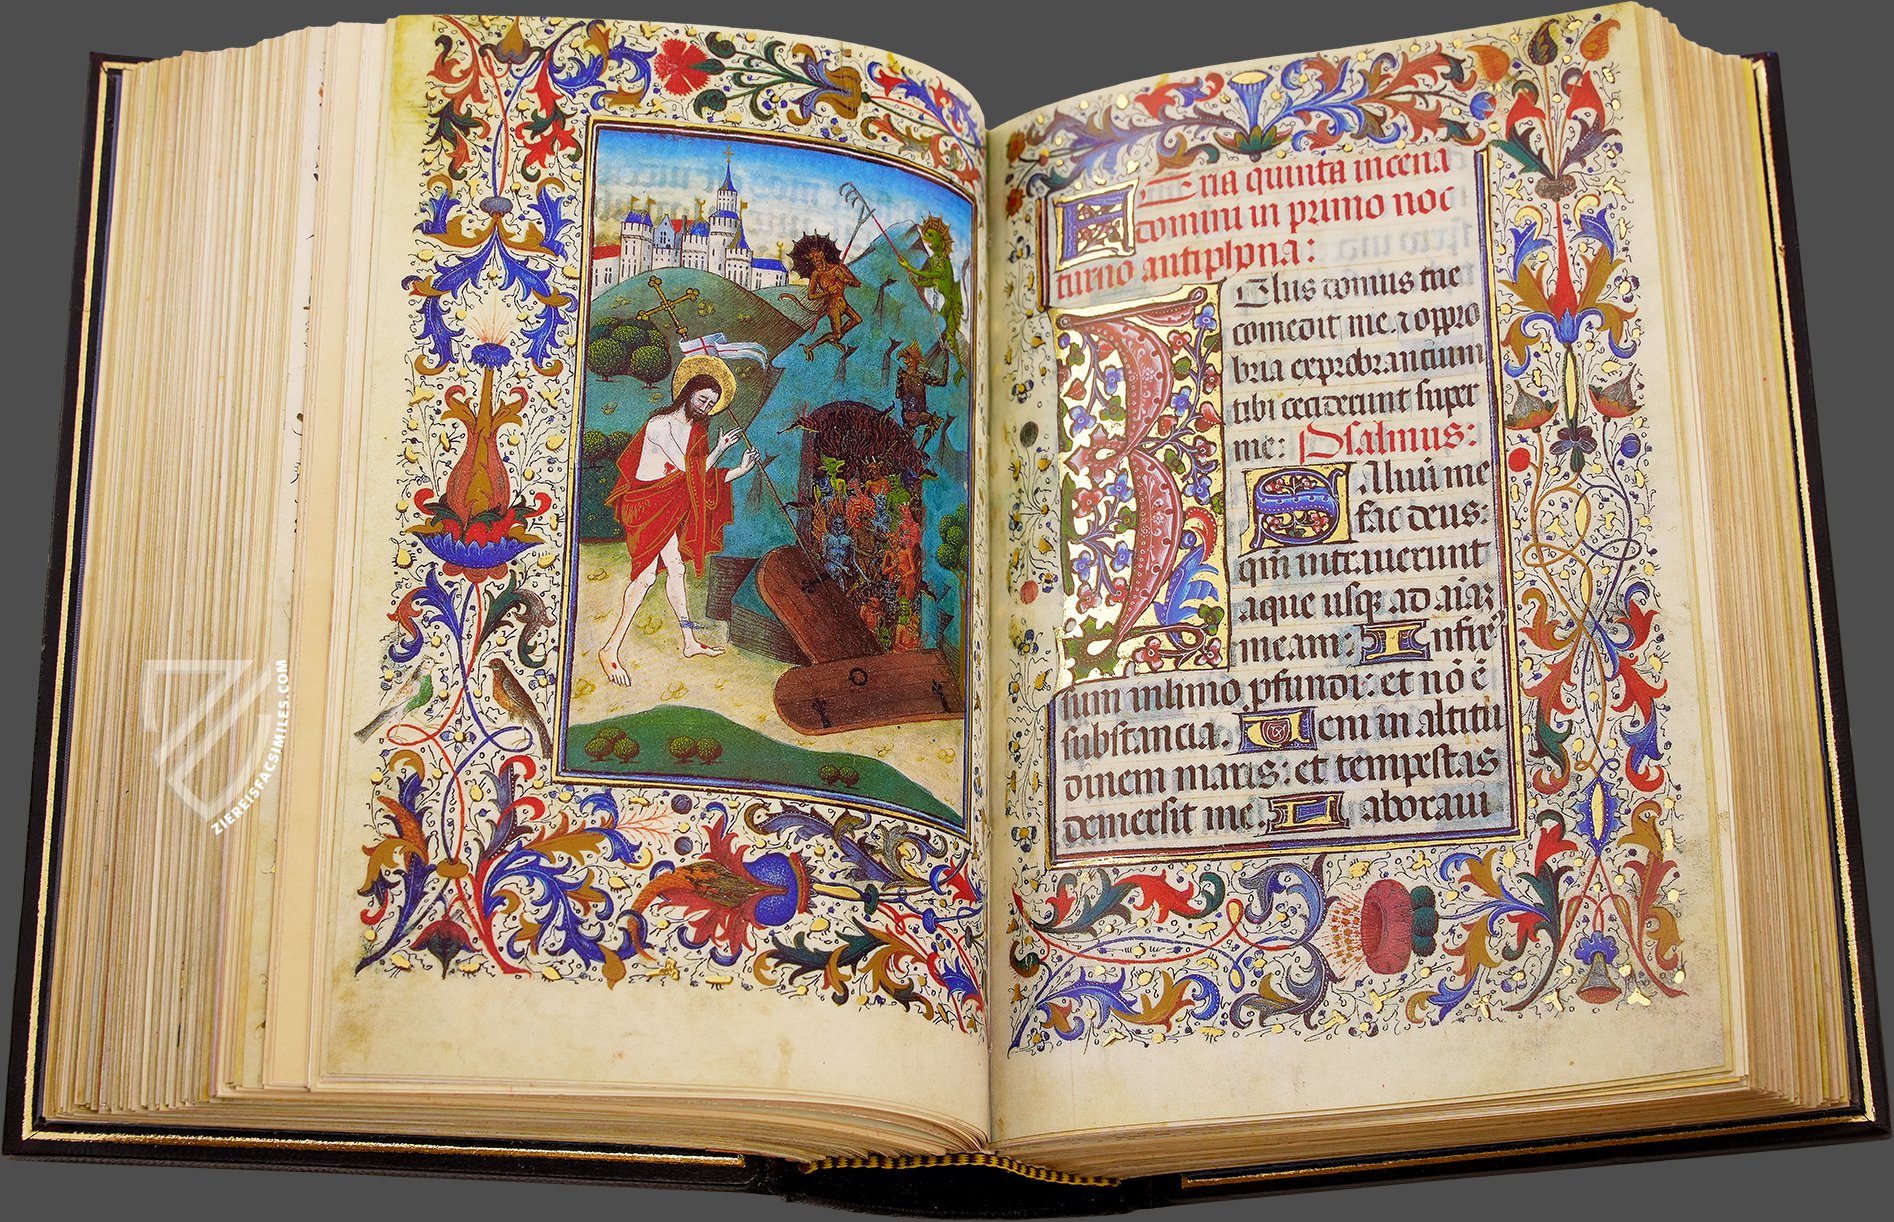 Eria quinta in cena
domini in primo noc
turno antiphona:
Elus domus tue
comedit me. ⁊ oppro
bria exprobrantium
tibi ceciderunt super
me: Psalmus:
Aluū me
fac deus:
qm̄ intrauerunt
aque usq; ad aīaȝ
meam: Infix
sum in limo ꝓfundi: et nō ē
substancia. Veni in altitu
dinem maris: et tempestas
demersit me. Laboraui
ZIEREISFACSIMILES.COM